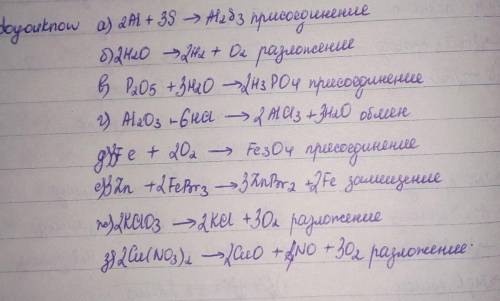 doyouknow а) 2Al + 3S → Al2S3 присоединение
б) 2H2O → 2H2 + O2 разложение
в) P2O5 + 3H2O → 2H3PO4 присоединение
г) Al2O3 + 6HCl → 2AlCl3 + 3H2O обмен
д) 3Fe + 2O2 → Fe3O4 присоединение
е) 3Zn + 2FeBr3 → 3ZnBr2 + 2Fe замещение
ж) 2KClO3 → 2KCl + 3O2 разложение
з) 2Cu(NO3)2 → 2CuO + 4NO + 3O2 разложение.